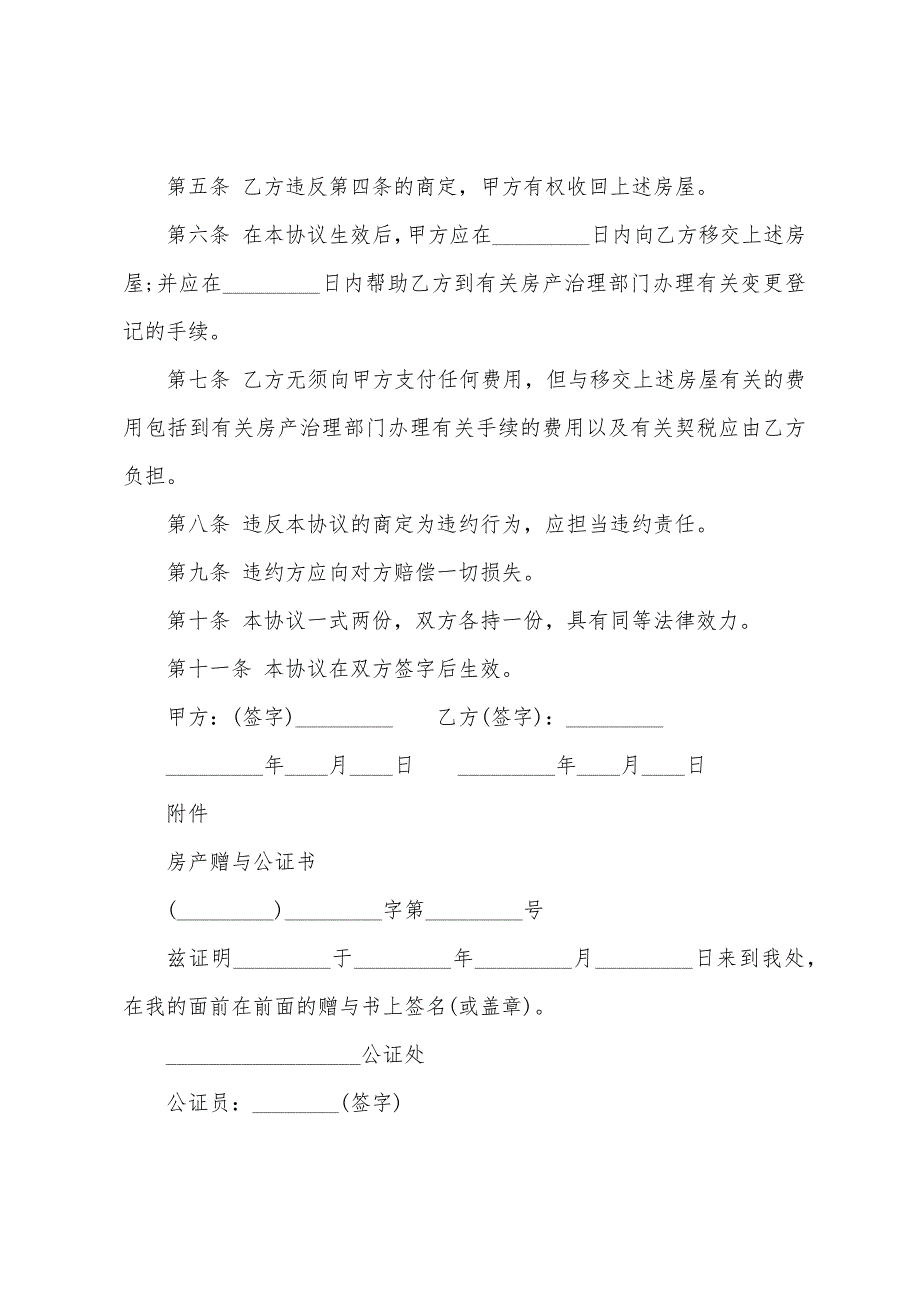 第五条 乙方违反第四条的商定，甲方有权收回上述房屋。
第六条 在本协议生效后,甲方应在_________日内向乙方移交上述房
屋;并应在_________日内帮助乙方到有关房产治理部门办理有关变更登
记的手续。
第七条 乙方无须向甲方支付任何费用，但与移交上述房屋有关的费
用包括到有关房产治理部门办理有关手续的费用以及有关契税应由乙方
负担。
第八条 违反本协议的商定为违约行为，应担当违约责任。
第九条 违约方应向对方赔偿一切损失。
第十条 本协议一式两份，双方各持一份，具有同等法律效力。
第十一条 本协议在双方签字后生效。
甲方：(签字)_________　　乙方(签字)：_________
_________年____月____日　　_________年____月____日
附件
房产赠与公证书
(_________)_________字第_________号
兹证明_________于_________年_________月_________日来到我处，
在我的面前在前面的赠与书上签名(或盖章)。
__________________公证处
公证员：________(签字)